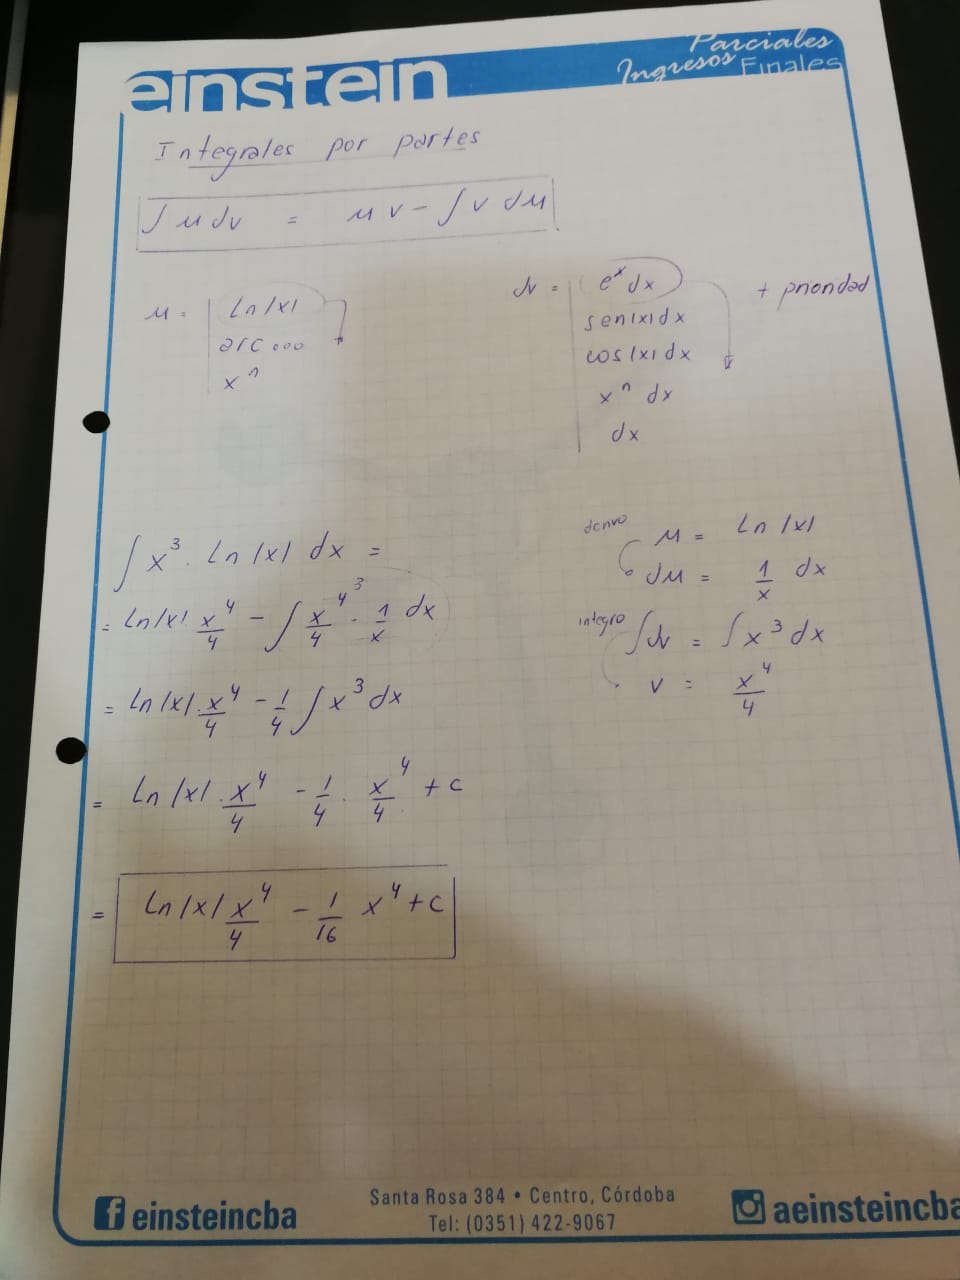 einstein
Parciales
Ingresos Finales
Integrales por partes
∫ u dv = u v - ∫ v du
u = | Ln |x|
arc ...
x^n
dv = | e^x dx
sen |x| dx
cos |x| dx
x^n dx
dx
+ prioridad
∫ x^3 . Ln |x| dx =
= Ln |x| x^4/4 - ∫ x^4/4 . 1/x dx
3
= Ln |x| . x^4/4 - 1/4 ∫ x^3 dx
= Ln |x| . x^4/4 - 1/4 . x^4/4 + c
= Ln |x| x^4/4 - 1/16 x^4 + c
derivo
u = Ln |x|
du = 1/x dx
integro
∫ dv = ∫ x^3 dx
v = x^4/4
f einsteincba
Santa Rosa 384 • Centro, Córdoba
Tel: (0351) 422-9067
aeinsteincba